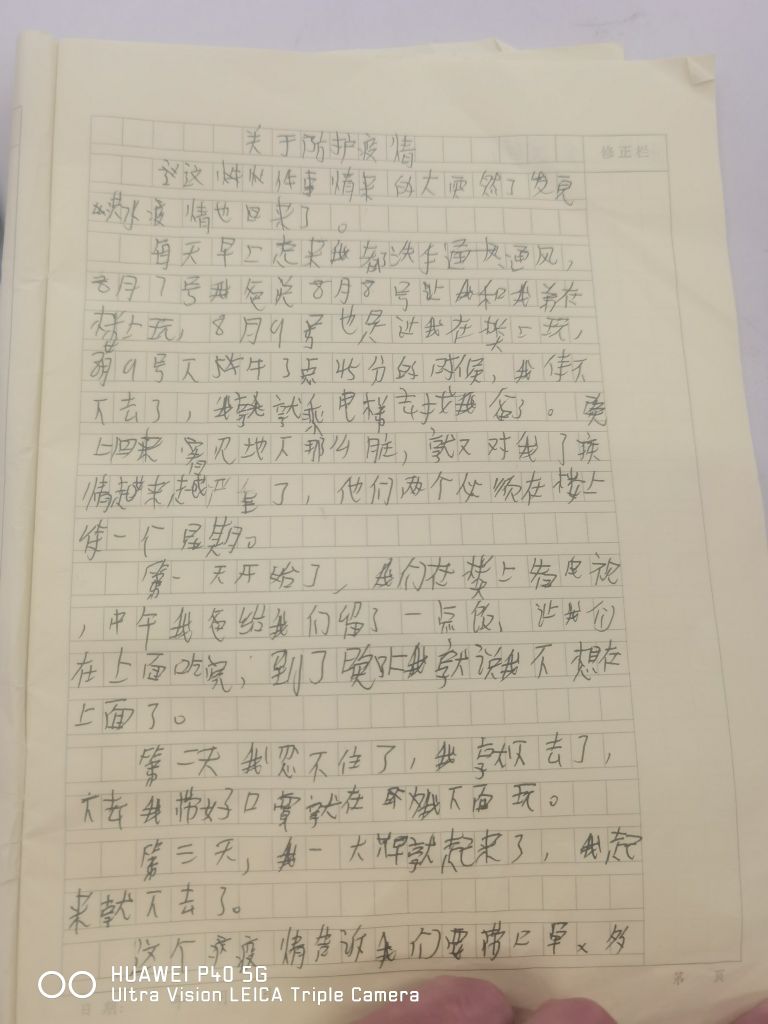 关于防护疫情
修正栏
这件事情来的太突然了发见
洪水疫情也回来了。
每天早上起来我都洗手通风通风，
8月7号我爸说8月8号让我和我弟在
楼上玩，8月9号也是让我在楼上玩，
9号下午3点45分的时候，我
下去了，我就乘电梯去找我爸了。晚
上回来看见地下那么脏，就又对我了疾
情越来越严重了，他们两个必须在楼上
待一个星期。
第一天开始了，我们在楼上看电视
，中午我爸给我们留了一点饭，让我们
在上面吃完，到了晚上我就说我不想在
上面了。
第二天我忍不住了，我就下去了，
下去我带好口罩就在下面玩。
第三天，我一大早就起来了，我起
来就下去了。
这个疫情告诉我们要带口罩、多
第 页
日期:
HUAWEI P40 5G
Ultra Vision LEICA Triple Camera